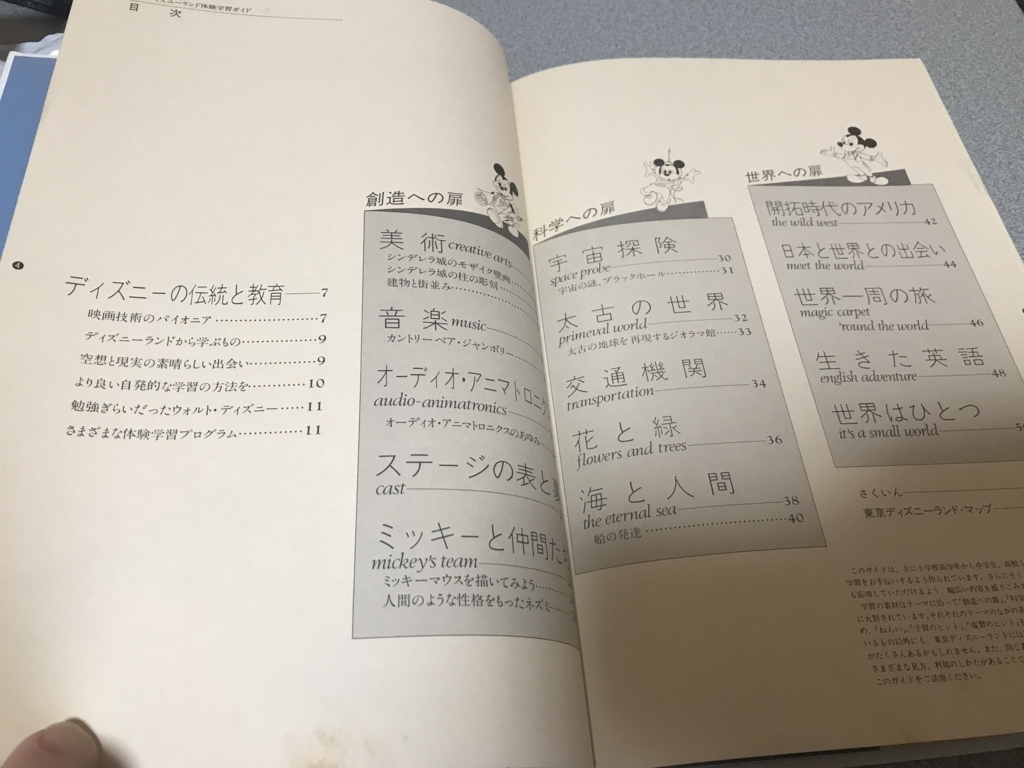 ズニーランド体験学習ガイド
目 次
ディズニーの伝統と教育——7
映画技術のパイオニア……………7
ディズニーランドから学ぶもの……………9
空想と現実の素晴らしい出会い……………9
より良い自発的な学習の方法を…………10
勉強ぎらいだったウォルト・ディズニー……11
さまざまな体験学習プログラム……………11
4
創造への扉
美術 creative arts
シンデレラ城のモザイク壁画
シンデレラ城の柱の彫刻
建物と街並み
音楽 music
カントリーベア・ジャンボリー
オーディオ・アニマトロニク
audio-animatronics
オーディオ・アニマトロニクスのあゆみ
ステージの表と
cast
ミッキーと仲間た
mickey's team
ミッキーマウスを描いてみよう
人間のような性格をもったネズミ
科学への扉
宇宙探険
space probe——30
宇宙の謎、ブラックホール……………31
太古の世界
primeval world——32
太古の地球を再現するジオラマ館……33
交通機関
transportation——34
花と緑
flowers and trees——36
海と人間
the eternal sea——38
船の発達……………40
世界への扉
開拓時代のアメリカ
the wild west——42
日本と世界との出会い
meet the world——44
世界一周の旅
magic carpet
'round the world——46
生きた英語
english adventure——48
世界はひとつ
it's a small world
さくいん
東京ディズニーランド・マップ
このガイドは、主に小学校高学年から中学生、高校
学習をお手伝いするよう作られています。さらにそう
も応用していただけるよう、幅広い内容を盛りこみ
学習の素材はテーマに沿って「創造への扉」「科学
に大別されています。それぞれのテーマのながの各
め、「ねらい」、「予習のヒント」、「復習のヒント」を
いるもの以外にも、東京ディズニーランドには
がたくさんあるかもしれません。また、同じ
さまざまな見方、利用のしかたがあることで
このガイドをご活用ください。